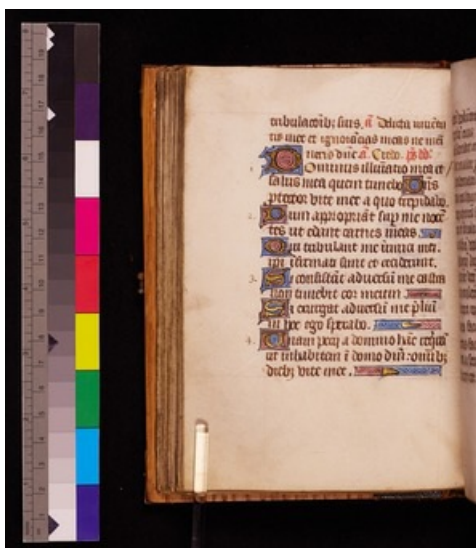 tribulacōibȝ suis. a̅ Delicta iuventu
tis mee et ignorācias meas ne mēi
neris dn̄e a̅ Credo. ps̄ dd̄
Ominus illuminatio mea et
salus mea quem timebo Dn̄s
ptector vite mee a quo trepidabo.
Dum apropriāt sup̄ me nocē
tes ut edant carnes meas
Qui tribulant me inimici mei
ipi ifirmati sunt et ceciderunt.
Si consistāt adversum me castra
non timebit cor meum
Si exurgat adversū me p̄liū
in hoc ego sperabo.
Unam pecij a domino hāc requirā
ut inhabitem ī domo dn̄i omībȝ
diebȝ vite mee.